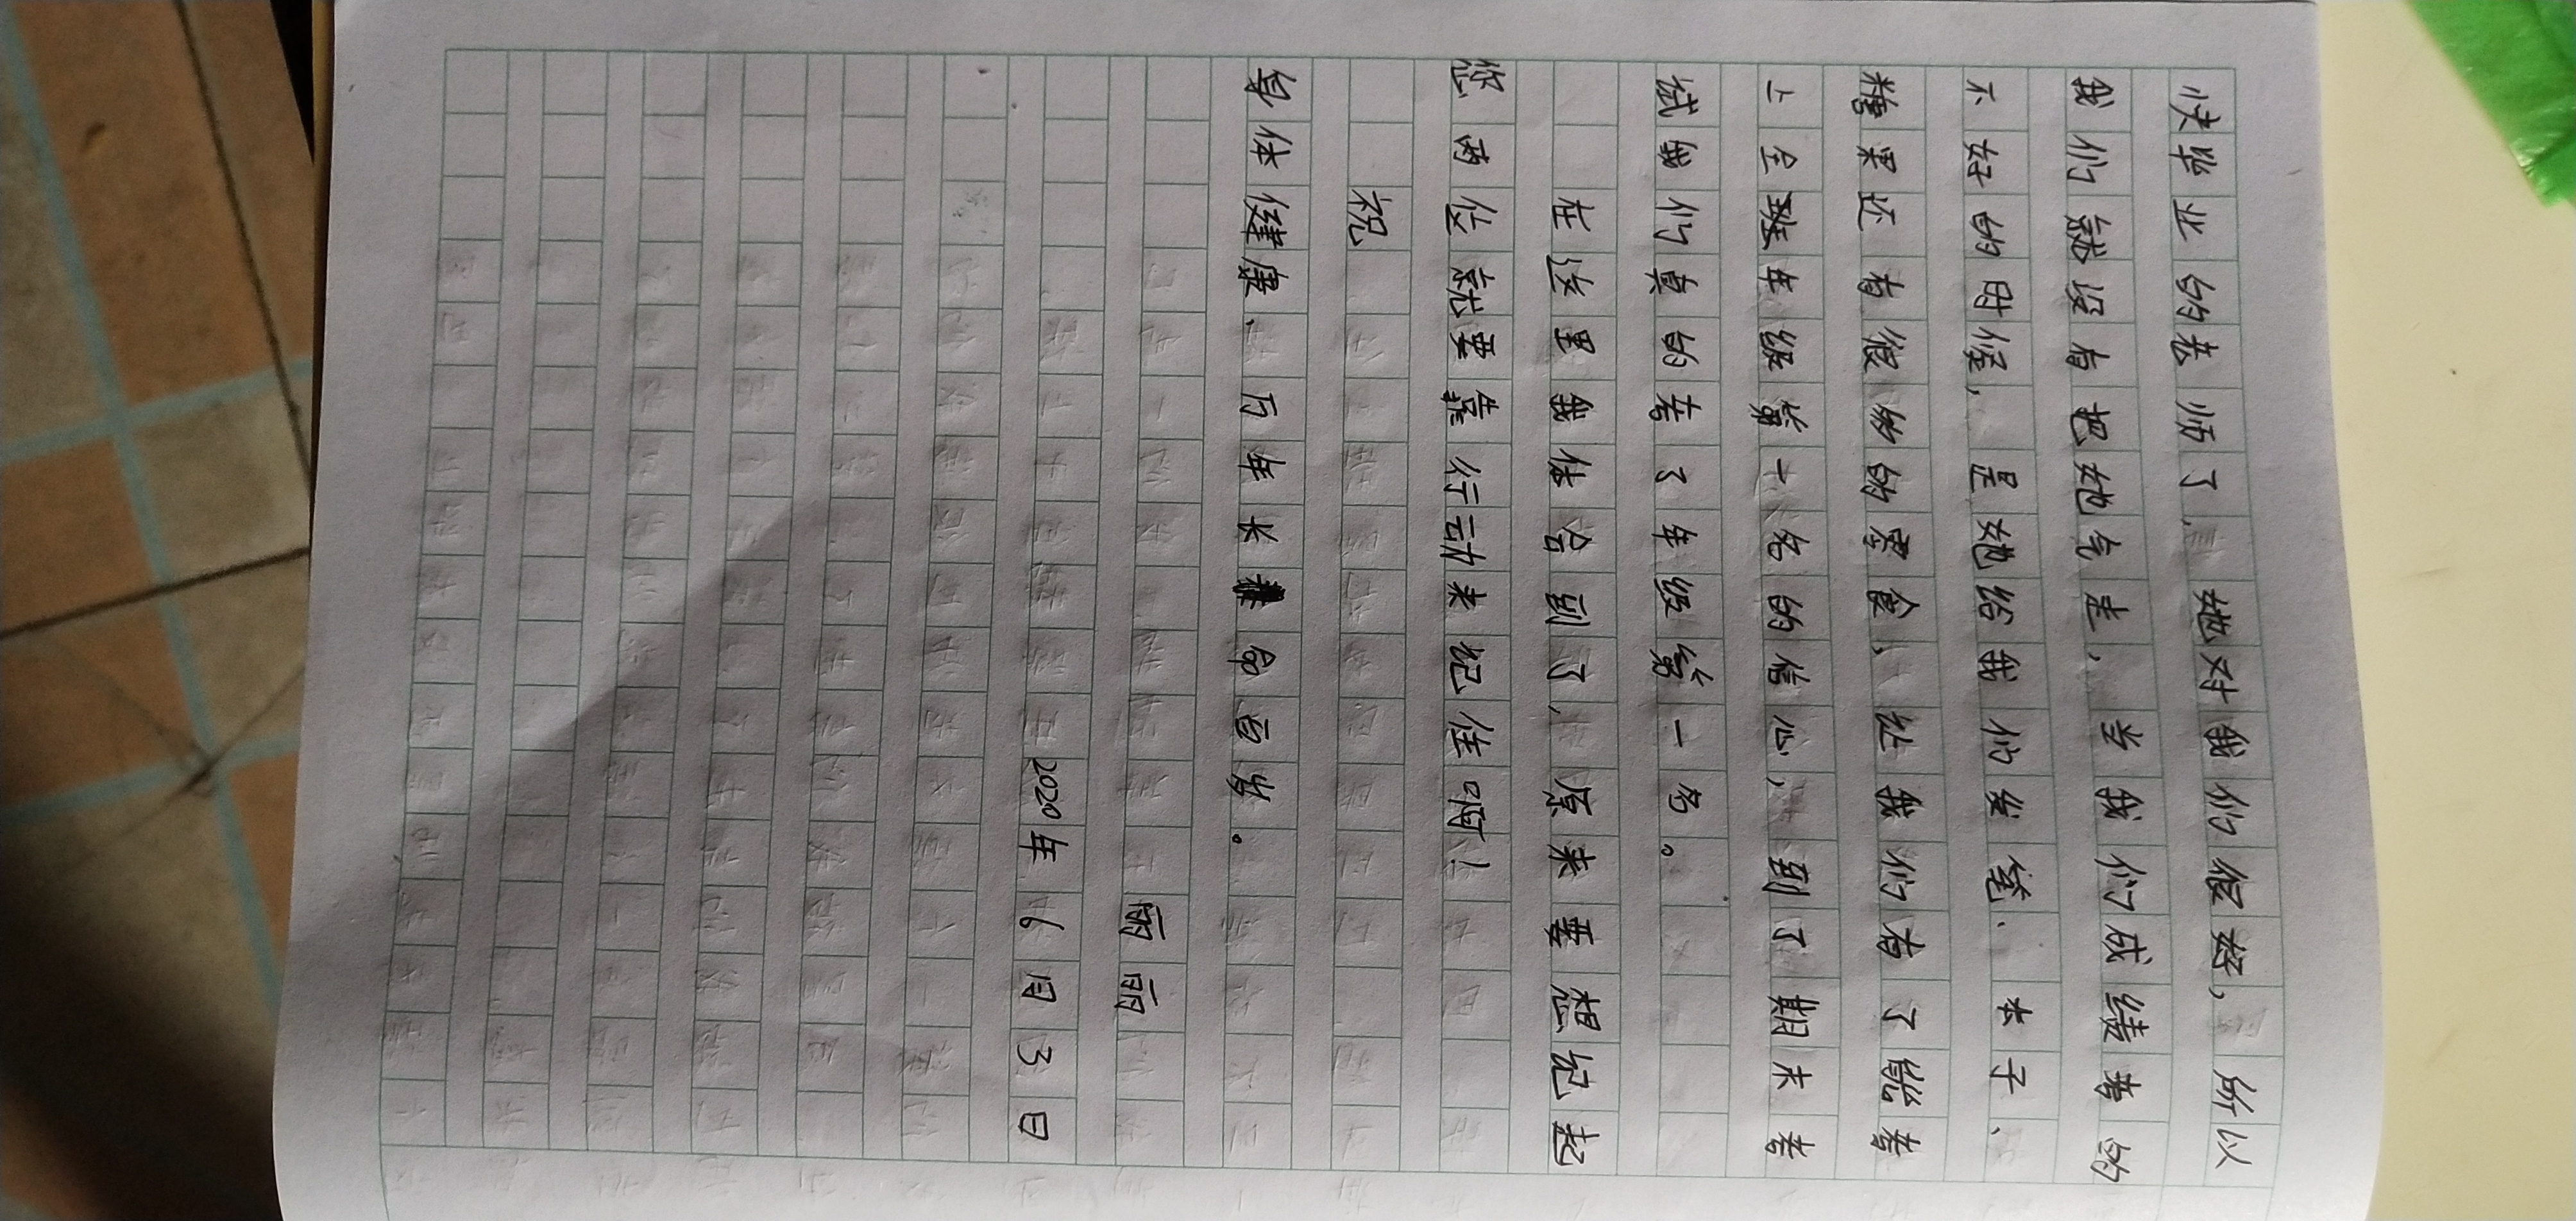 快毕业的老师了，她对我们很好，所以
我们就没有把她气走，当我们成绩考的
不好的时候，是她给我们发笔、本子、
糖果还有很多的零食，让我们有了能考
上全班年级第十名的信心，到了期末考
试我们真的考了年级第一名。
在这里我体会到了，原来要想记起
您两位就要靠行动来记住啊！
祝
身体健康、万年长命百岁。
丽丽
2020年6月3日